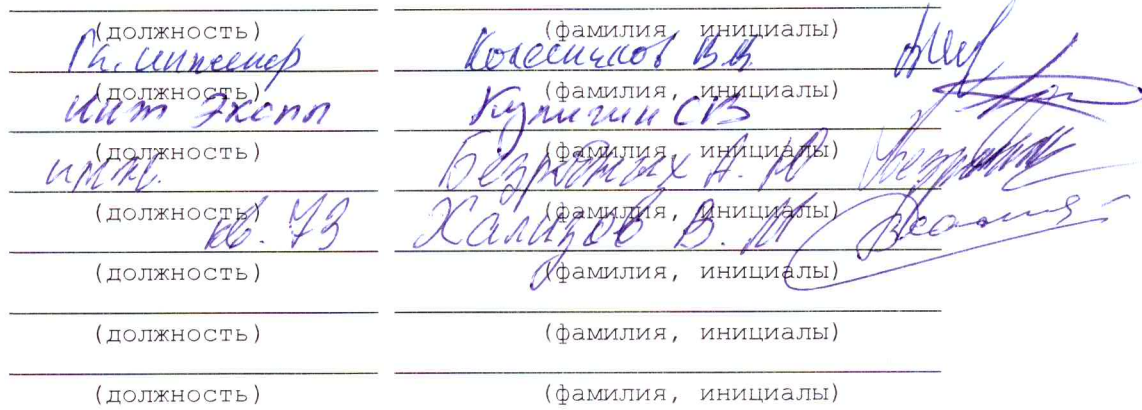 (должность) (фамилия, инициалы)
Гл. инженер Колесников В.В.
(должность) (фамилия, инициалы)
инж Экспл СВ
(должность) (фамилия, инициалы)
инж. Безродных А. Ю
(должность) (фамилия, инициалы)
кв. 73 Хализов В. М
(должность) (фамилия, инициалы)
(должность) (фамилия, инициалы)
(должность) (фамилия, инициалы)